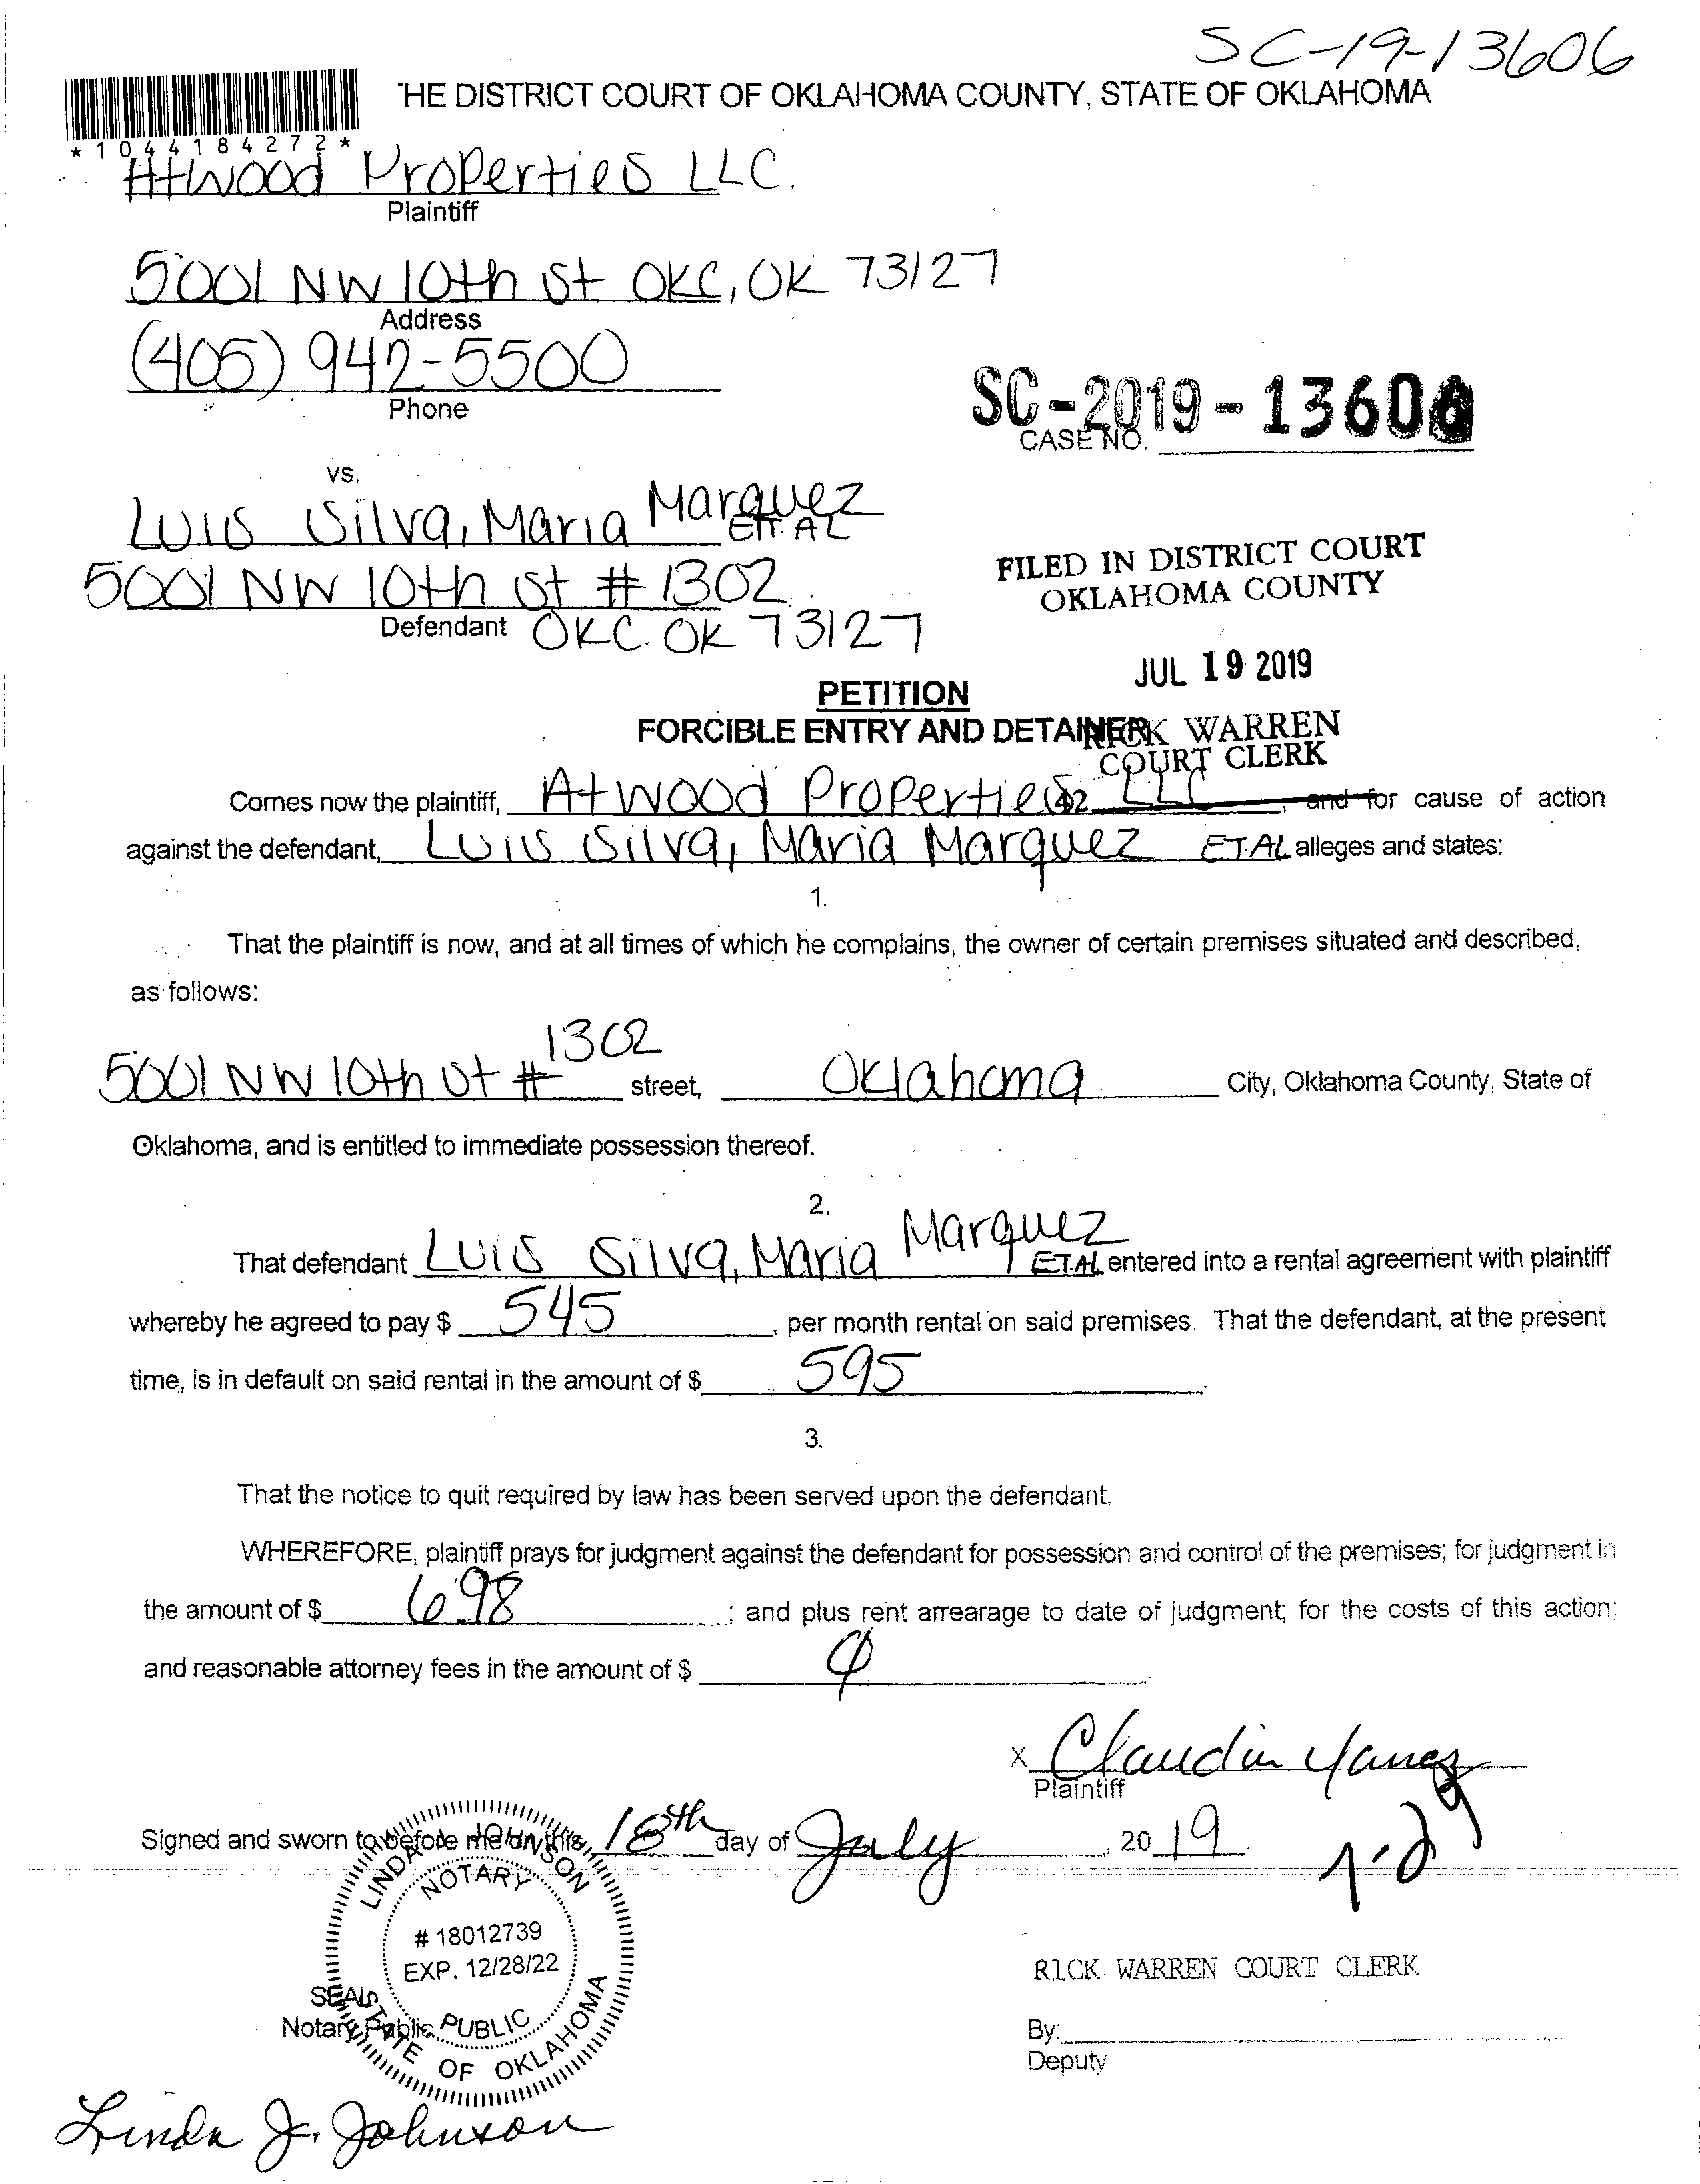 SC-19-13606
THE DISTRICT COURT OF OKLAHOMA COUNTY, STATE OF OKLAHOMA
*1044184272*
Atwood Properties LLC.
Plaintiff
5001 NW 10th St OKC, OK 73127
Address
(405) 942-5500
Phone
SC-2019-13606
CASE NO.
vs.
Luis Silva, Maria Marquez
ET. AL
5001 NW 10th St # 1302
Defendant OKC OK 73127
FILED IN DISTRICT COURT
OKLAHOMA COUNTY
JUL 19 2019
RICK WARREN
COURT CLERK
PETITION
FORCIBLE ENTRY AND DETAINER
Comes now the plaintiff, Atwood Properties LLC, and for cause of action
against the defendant, Luis Silva, Maria Marquez ET.AL alleges and states:
1.
That the plaintiff is now, and at all times of which he complains, the owner of certain premises situated and described,
as follows:
5001 NW 10th St # 1302 street, Oklahoma City, Oklahoma County, State of
Oklahoma, and is entitled to immediate possession thereof.
2.
That defendant Luis Silva, Maria Marquez ET.AL entered into a rental agreement with plaintiff
whereby he agreed to pay $ 545, per month rental on said premises. That the defendant, at the present
time, is in default on said rental in the amount of $ 595
3.
That the notice to quit required by law has been served upon the defendant.
WHEREFORE, plaintiff prays for judgment against the defendant for possession and control of the premises; for judgment in
the amount of $ 698; and plus rent arrearage to date of judgment; for the costs of this action;
and reasonable attorney fees in the amount of $
X Claudia Yanez
Plaintiff
Signed and sworn to before me on this 18th day of July, 2019
LINDA JOHNSON
NOTARY
# 18012739
EXP. 12/28/22
PUBLIC
STATE OF OKLAHOMA
SEAL
Notary Public
RICK WARREN COURT CLERK
By:
Deputy
Linda J. Johnson